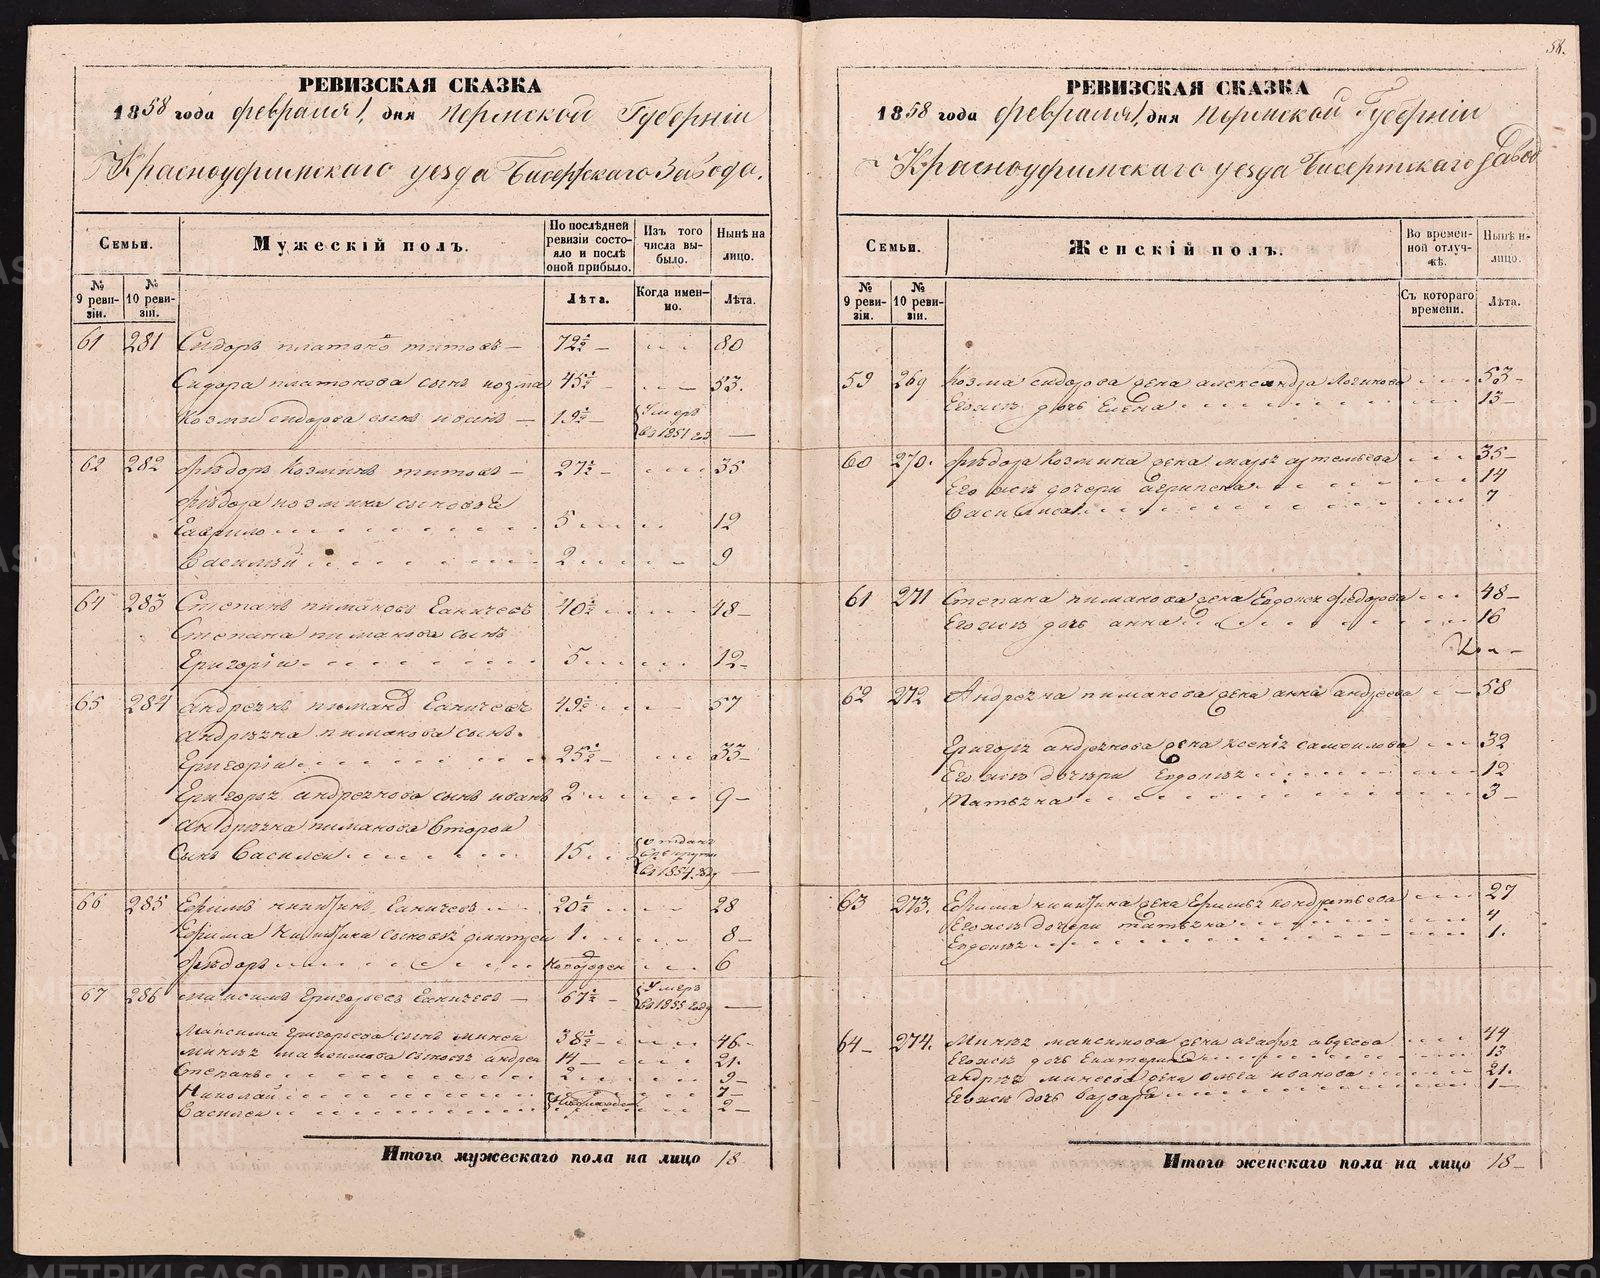 РЕВИЗСКАЯ СКАЗКА
1858 года февраля 1, дня Пермской Губерніи
Красноуфимскаго уезда Бисертскаго Завода.
Семьи.
Мужескій полъ.
По послѣдней ревизіи состояло и послѣ оной прибыло.
Изъ того числа выбыло.
Нынѣ на лицо.
№ 9 ревизіи.
№ 10 ревизіи.
Лѣта.
Когда именно.
Лѣта.
61 281 Сидоръ платоно титовъ 72½ 80
Сидора платонова сынъ козма 45½ 53.
Козми сидорова сынъ иванъ 19½ Умеръ въ 1851 год
62 282 Ѳѣдоръ Козминъ титовъ 27½ 35
Ѳѣдора козмина сыновьѣ
Гаврило 5 12
Василѣй 2 9
64 283 Степанъ пимановъ Ганичевъ 40½ 48
Степана пиманова сынъ
Григоріи 5 12
65 284 андреянъ пиманов Ганичевъ 49½ 57
андреяна пиманова сынъ.
Григоріи 25½ 33
Григорья андреянова сынъ иванъ 2 9
андреяна пиманова второй
Сынъ Василеи 15 отданъ въ рекруты въ 1854 году
66 285 Ефимъ никитинъ Ганичевъ 20½ 28
Ефима Никитина сыновья дмитреи 1 8
Ѳѣдоръ новорожден 6
67 286 максимъ Григорьевъ Ганичевъ 67½ Умеръ въ 1855 году
Максима григорьева сынъ минеи 38½ 46
минея максимова сыновья андреи 14 21.
Степанъ 2 9
Николай 7
Василеи 2
Итого мужескаго пола на лицо 18
58.
РЕВИЗСКАЯ СКАЗКА
1858 года февраля 1, дня Пермской Губерніи
Красноуфимскаго уезда Бисертскаго Завод
Семьи.
Женскій полъ.
Во временной отлучкѣ.
Нынѣ на лицо.
№ 9 ревизіи.
№ 10 ревизіи.
Съ котораго времени.
Лѣта.
59 269 Козма сидорова жена александра Логинова 53
Его жъ дочь Елена 13
60 270. Ѳѣдора Козмина жена марья артемьева 35
Его жъ дочери агрипена 14
Василиса 7
61 271 Степана пиманова жена Евдокея Ѳѣдорова 48
Его жъ дочь анна 16
62 272 Андреяна пиманова жена анна андреева 58
Григорья андреянова жена ксенія самоилова 32
Его жъ дочѣри Евдокѣя 12
Татьяна 3
63 273. Ефима никитина жена Ефимья кондратьева 27
Его жъ дочери татьяна 4
Евдокѣя 1.
64 274. Минея максимова жена агафья авдеева 44
Его жъ дочь Екатерина 13
андрея минеева жена ольга иванова 21.
Его жъ дочь варвара 1
Итого женскаго пола на лицо 18
METRIKI.GASO-URAL.RU